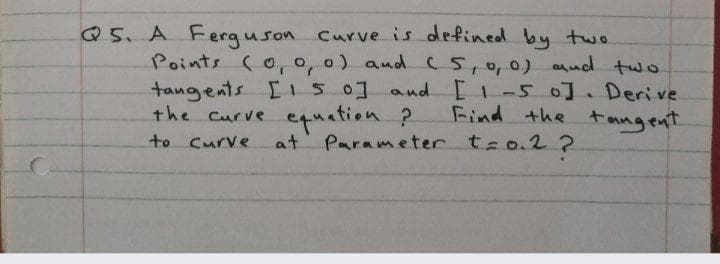 Q5. A Ferguson curve is defined by two
Points (0,0,0) and (5,0,0) and two
tangents [1 5 0] and [1 -5 0]. Derive
the curve equation ? Find the tangent
to curve at Parameter t=0.2 ?